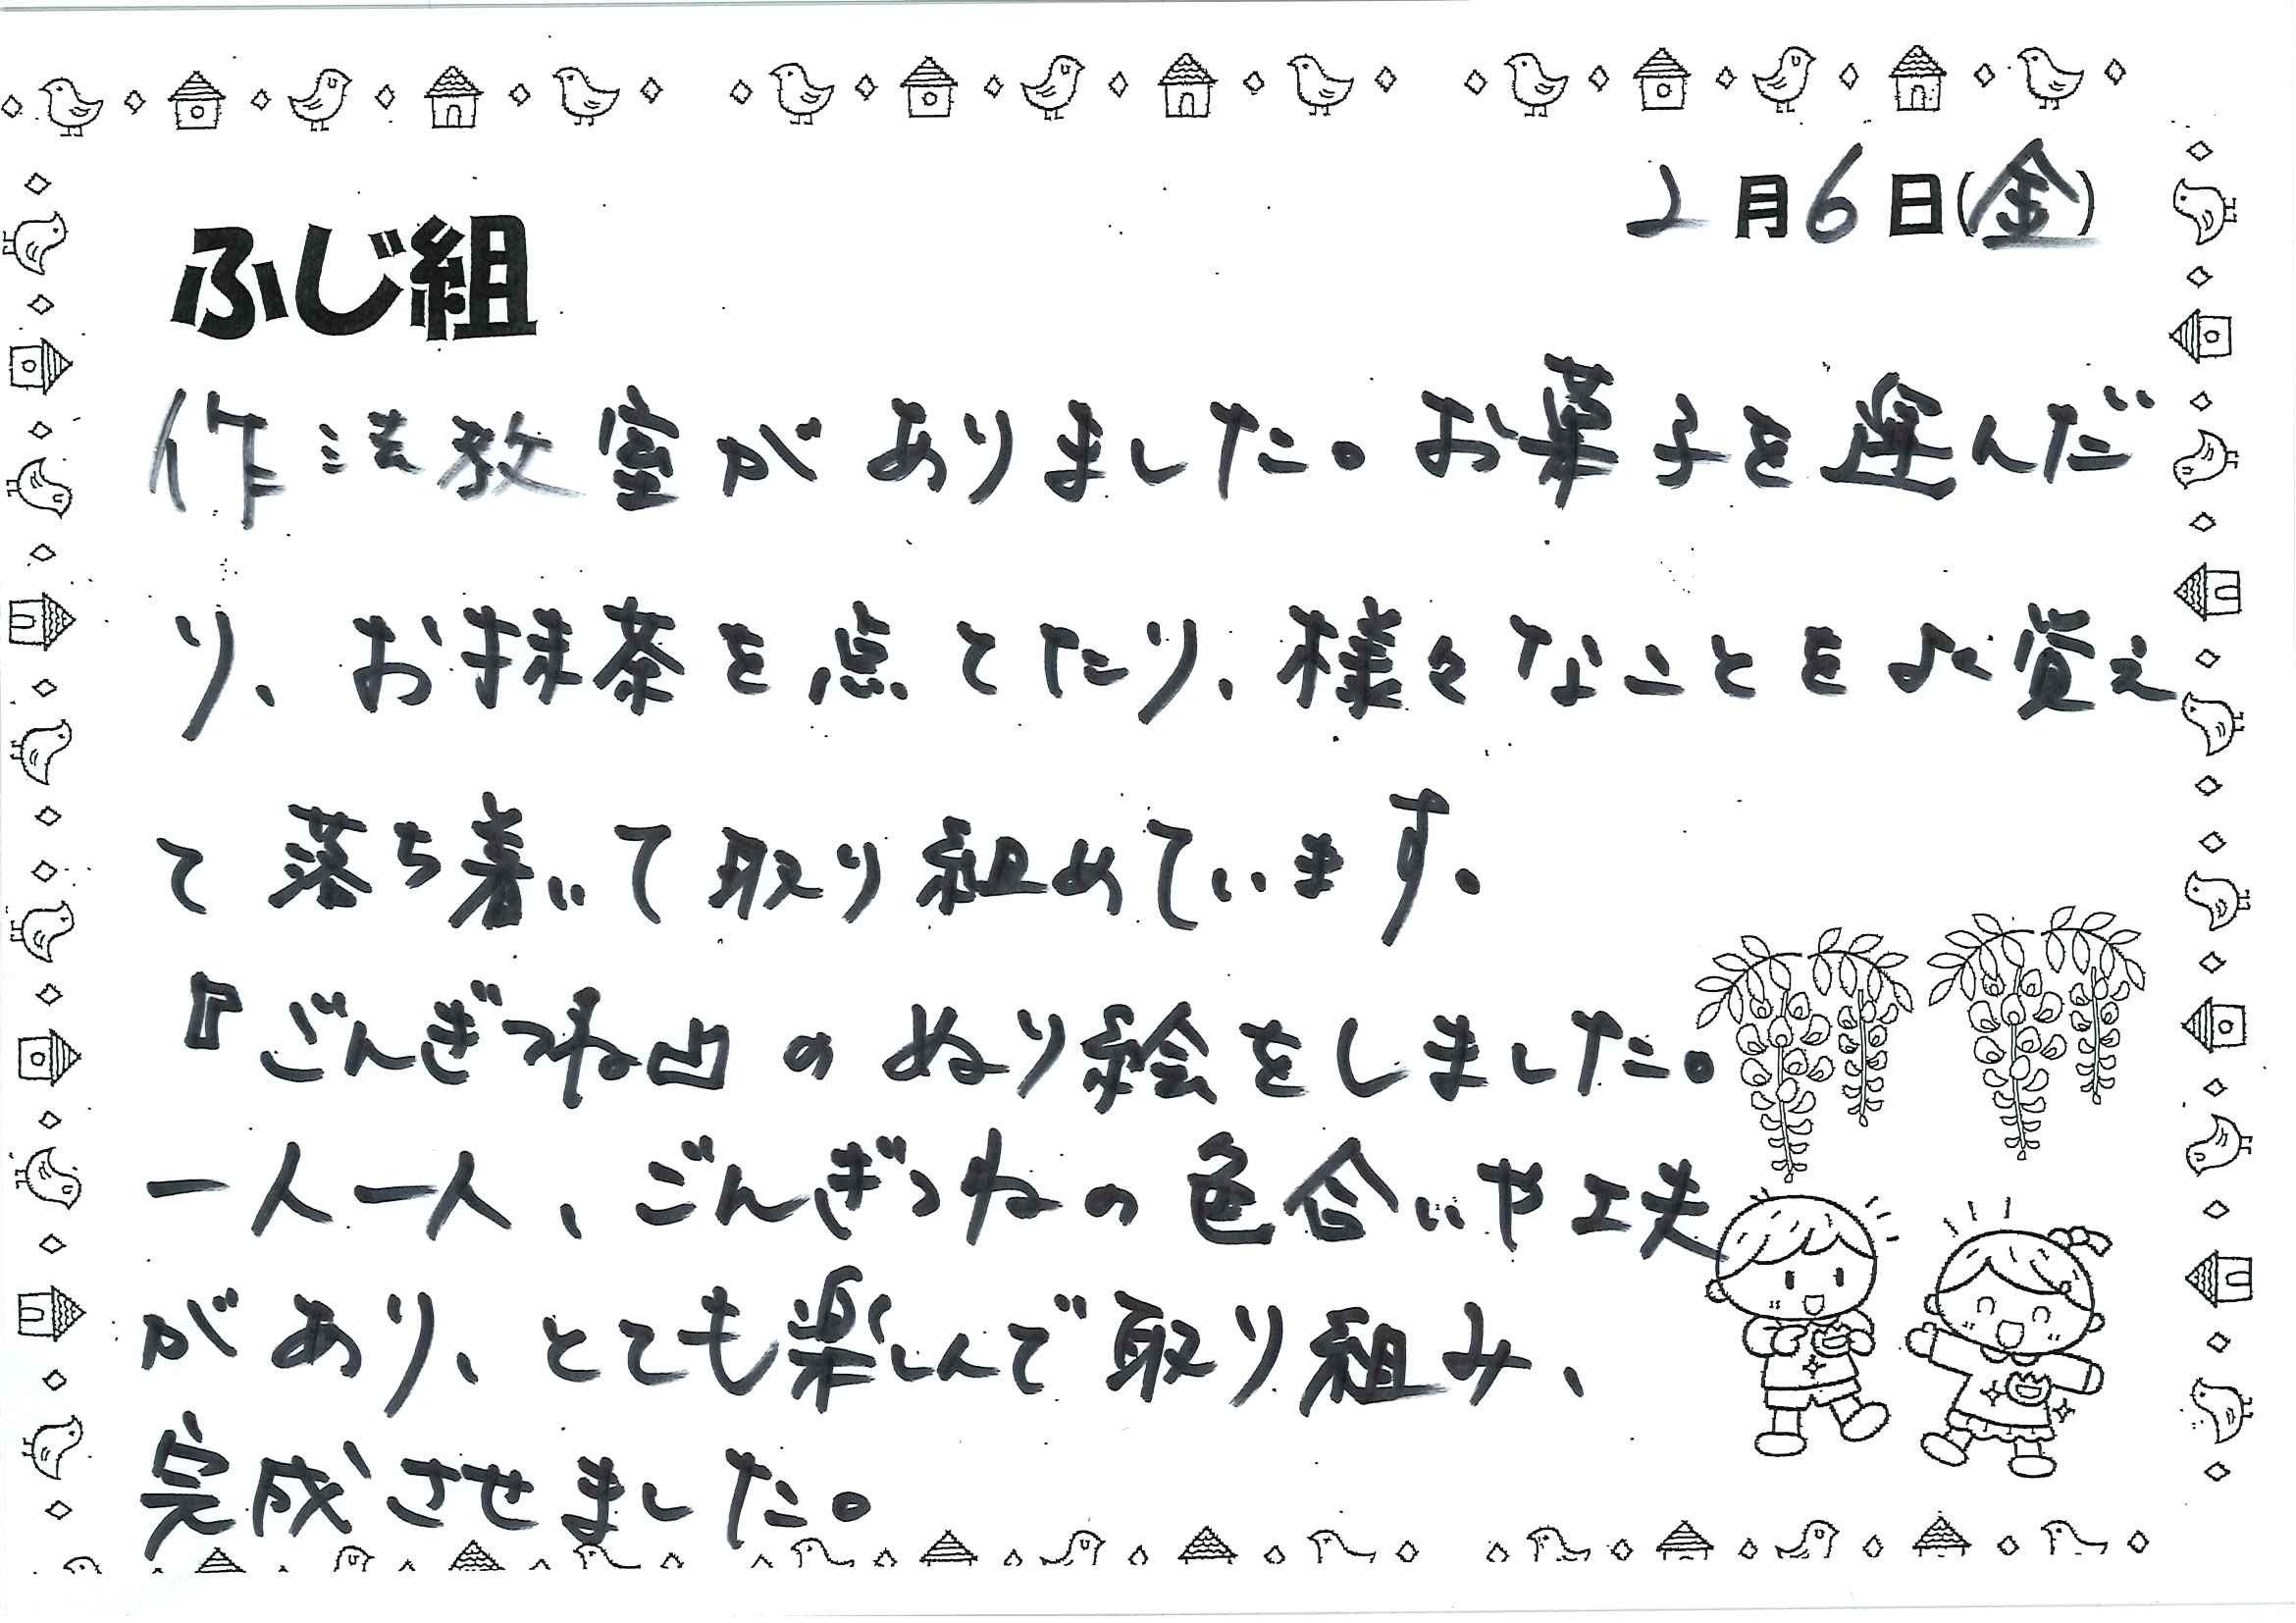 2月6日(金)
ふじ組
作法教室がありました。お菓子を選んだ
り、お抹茶を点てたり、様々なことをよく覚え
て落ち着いて取り組めています。
『ごんぎつね』のぬり絵をしました。
一人一人、ごんぎつねの色合いや工夫
があり、とても楽しんで取り組み、
完成させました。